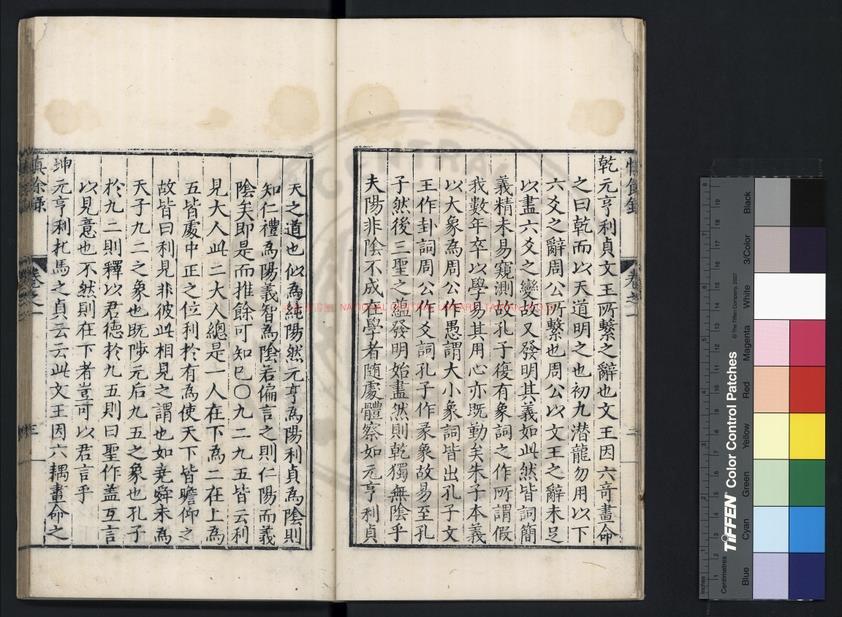 乾元亨利貞文王所繫之辭也文王因六奇畫命
之曰乾而以天道明之也初九潜龍勿用以下
六爻之辭周公所繫也周公以文王之辭未足
以盡六爻之變故又發明其義如此然皆詞簡
義精未易窺測故孔子復有象詞之作所謂假
我數年卒以學易其用心亦既勤矣朱子本義
以大象為周公作愚謂大小象詞皆出孔子文
王作卦詞周公作爻詞孔子作彖象故易至孔
子然後三聖之蘊發明始盡然則乾獨無陰乎
夫陽非陰不成在學者隨處體察如元亨利貞
天之道也似為純陽然元亨為陽利貞為陰則
知仁禮為陽義智為陰若偏言之則仁陽而義
陰矣即是而推餘可知已〇九二九五皆云利
見大人此二大人總是一人在下為二在上為
五皆處中正之位利於有為使天下皆瞻仰之
故皆曰利見非彼此相見之謂也如堯舜未為
天子九二之象也既陟元后九五之象也孔子
於九二則釋以君德於九五則曰聖作蓋互言
以見意也不然則在下者豈可以君言乎
坤元亨利牝馬之貞云云此文王因六耦畫命之
慎餘錄
卷之一
三
NATIONAL CENTRAL LIBRARY, TAIWAN, R.O.C.
TIFFEN Color Control Patches
© The Tiffen Company, 2007
Centimetres
Inches
Blue
Cyan
Green
Yellow
Red
Magenta
White
3/Color
Black